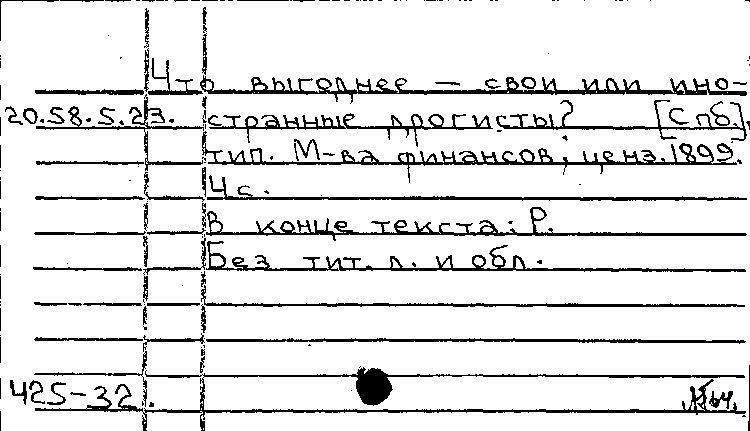 Что выгоднее — свои или ино-
20.58.5.23. странные дрогисты? [Спб.],
тип. М-ва финансов, ценз. 1899.
4с.
В конце текста: Р.
Без тит. л. и обл.
425-32.